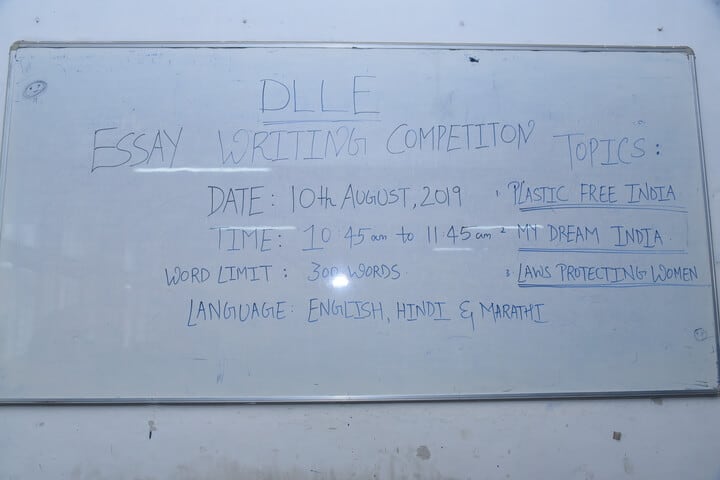 DLLE
ESSAY WRITING COMPETITON
DATE: 10th AUGUST, 2019
TIME: 10.45am to 11.45am
WORD LIMIT: 300 WORDS.
LANGUAGE: ENGLISH, HINDI & MARATHI
TOPICS:
1. PLASTIC FREE INDIA
2. MY DREAM INDIA.
3. LAWS PROTECTING WOMEN